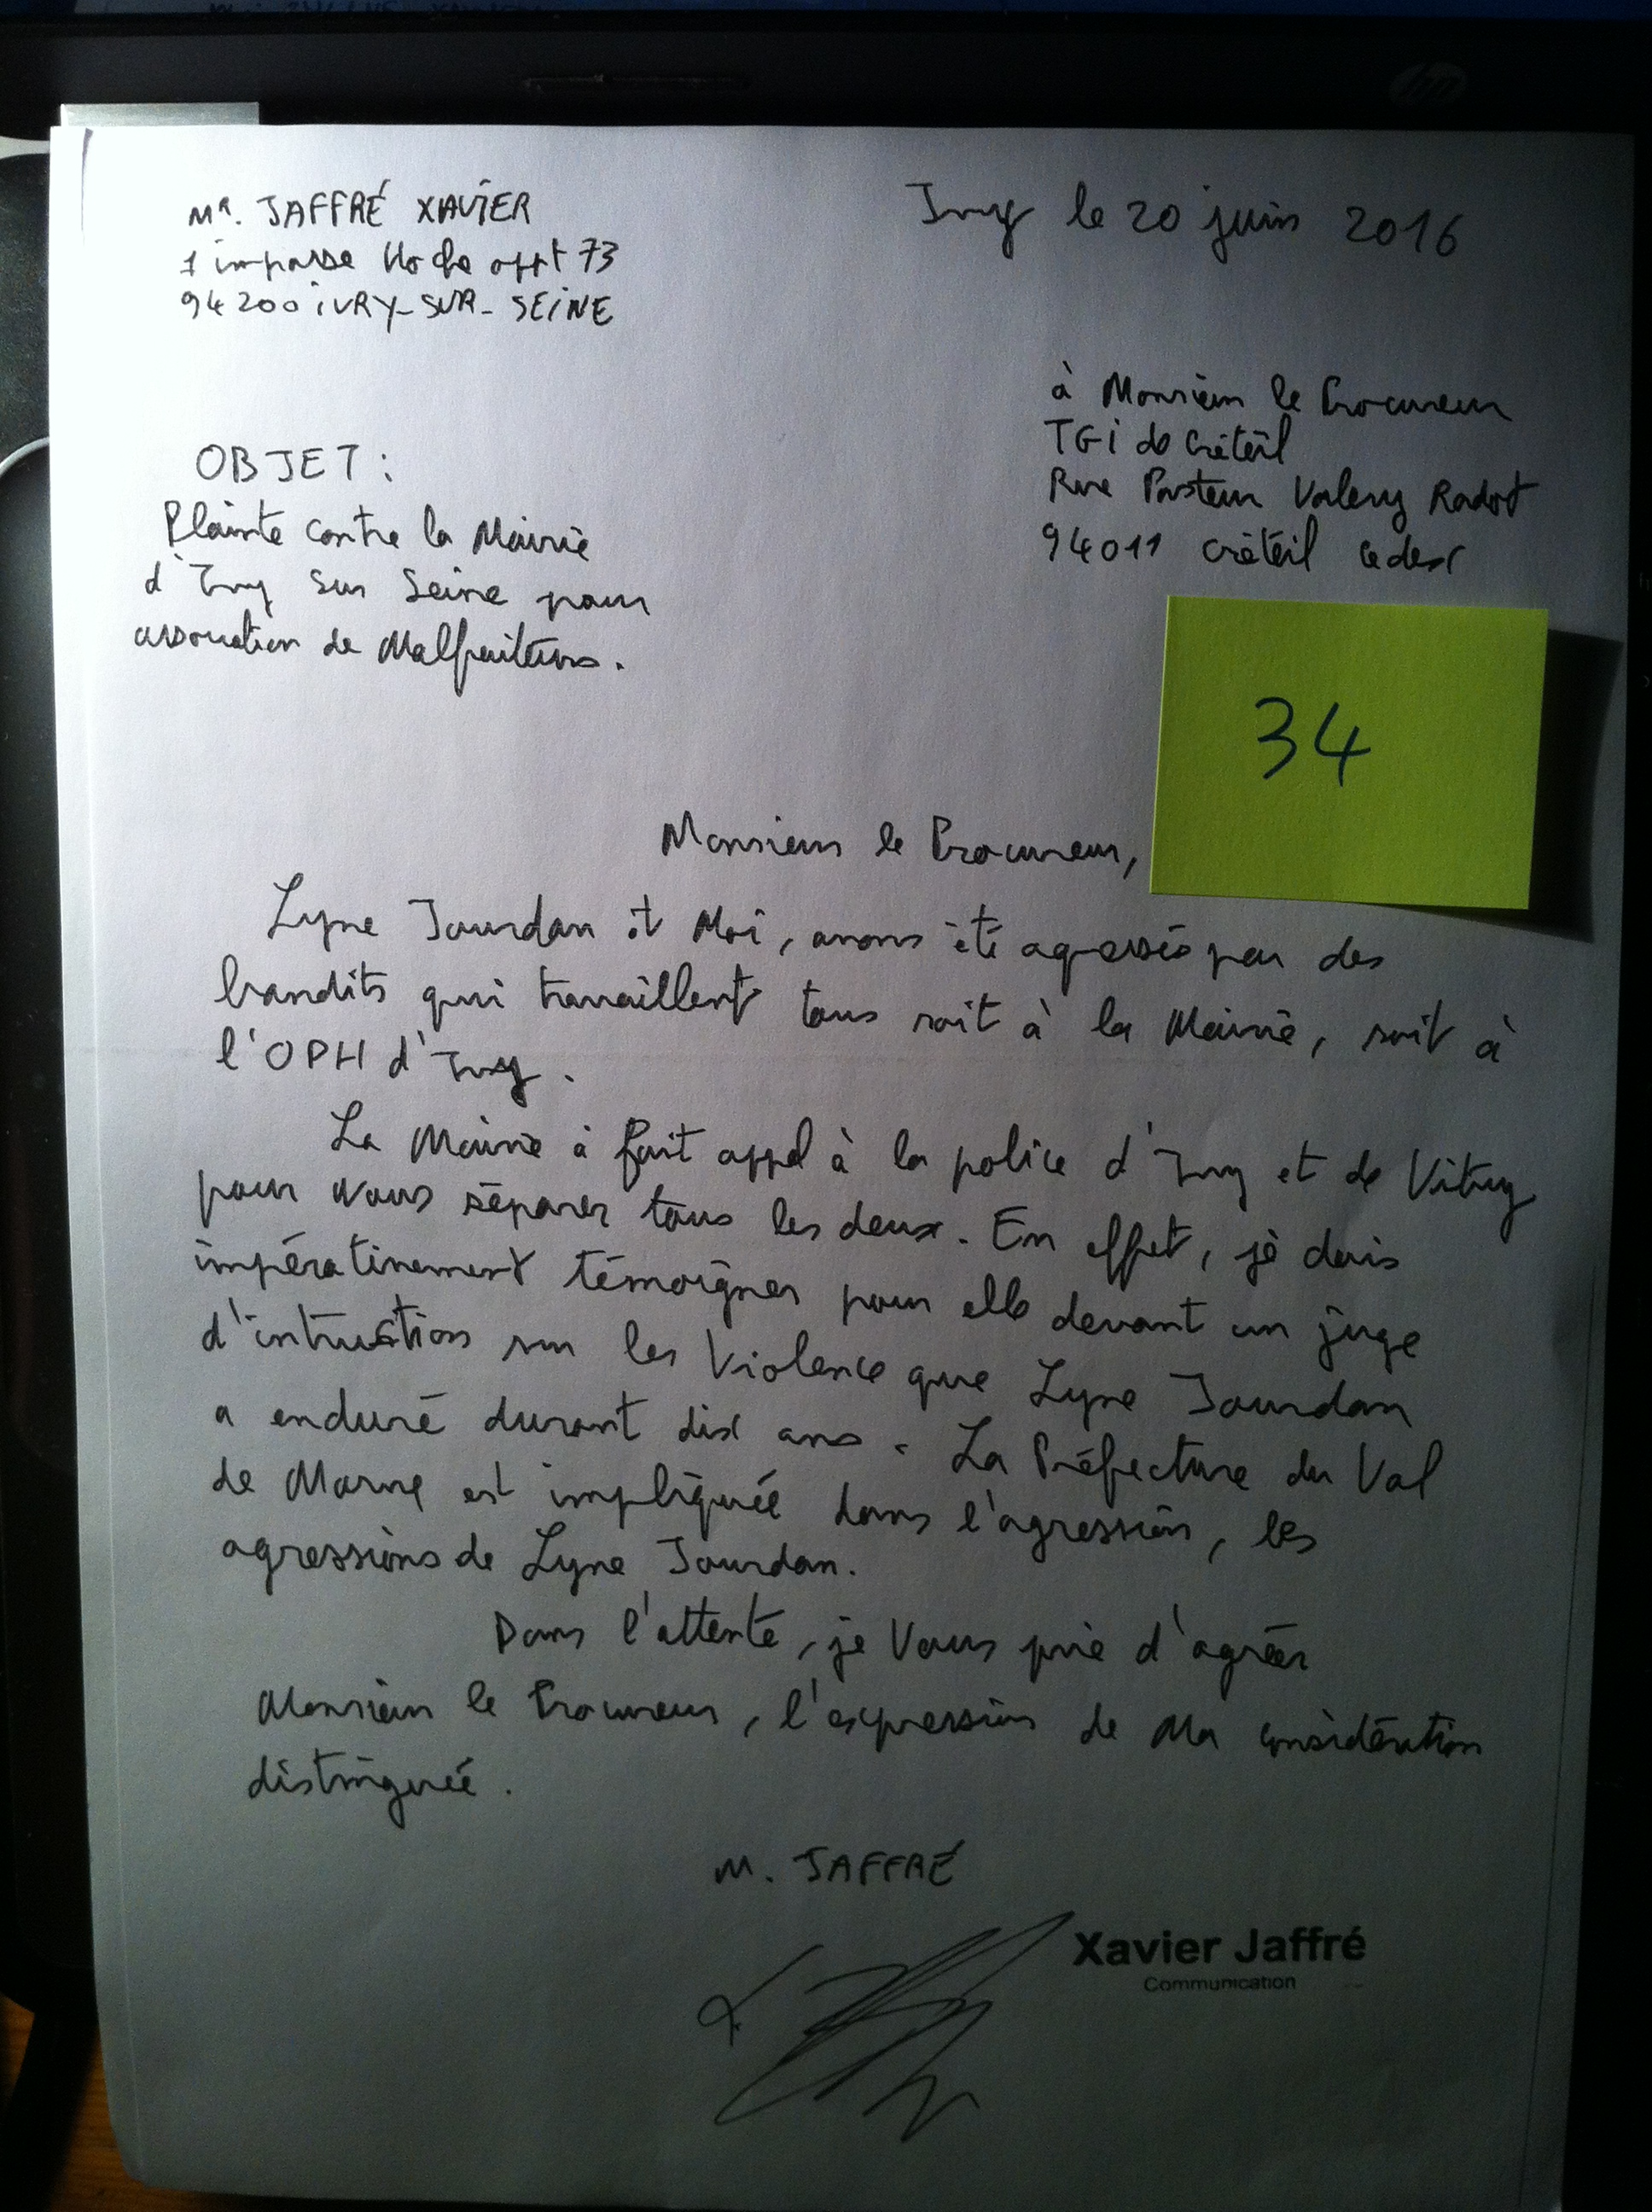 Mr. JAFFRÉ XAVIER
1 impasse Hoche appt 73
94200 iVRY-SUR-SEINE
Ivry le 20 juin 2016
à Monsieur le Procureur
TGi de Créteil
Rue Pasteur Valery Radot
94011 Créteil Cedex
OBJET :
Plainte contre la Mairie
d'Ivry sur Seine pour
association de Malfaiteurs.
34
Monsieur le Procureur,
Lyne Jourdan et Moi, avons été agressés par des
bandits qui travaillent tous soit à la Mairie, soit à
l'OPH d'Ivry.
La Mairie à fait appel à la police d'Ivry et de Vitry
pour nous séparer tous les deux. En effet, je dois
impérativement témoigner pour elle devant un juge
d'intruction sur les Violence que Lyne Jourdan
a enduré durant dix ans. La Préfecture du Val
de Marne est impliquée dans l'agression, les
agressions de Lyne Jourdan.
Dans l'attente, je Vous prie d'agréer
Monsieur le Procureur, l'expression de Ma considération
distinguée.
M. JAFFRÉ
Xavier Jaffré
Communication